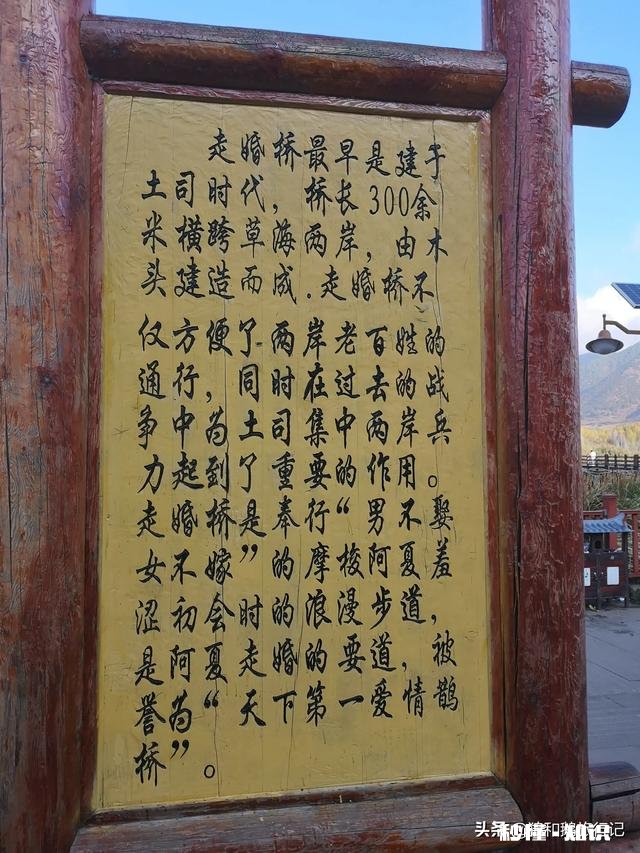 走婚桥最早是建于
土司时代，桥长300余
米横跨草海两岸，由木
头建造而成.走婚桥不
仅方便了两岸老百姓的
通行，同时在过去的战
争中为土司集中两岸兵
力起到了重要的作用。
走婚桥是奉行“男不娶
女不嫁”的摩梭阿夏羞
涩初会时的浪漫步道，
是阿夏走婚的要道，被
誉为“天下第一爱情鹊
桥”。
头条